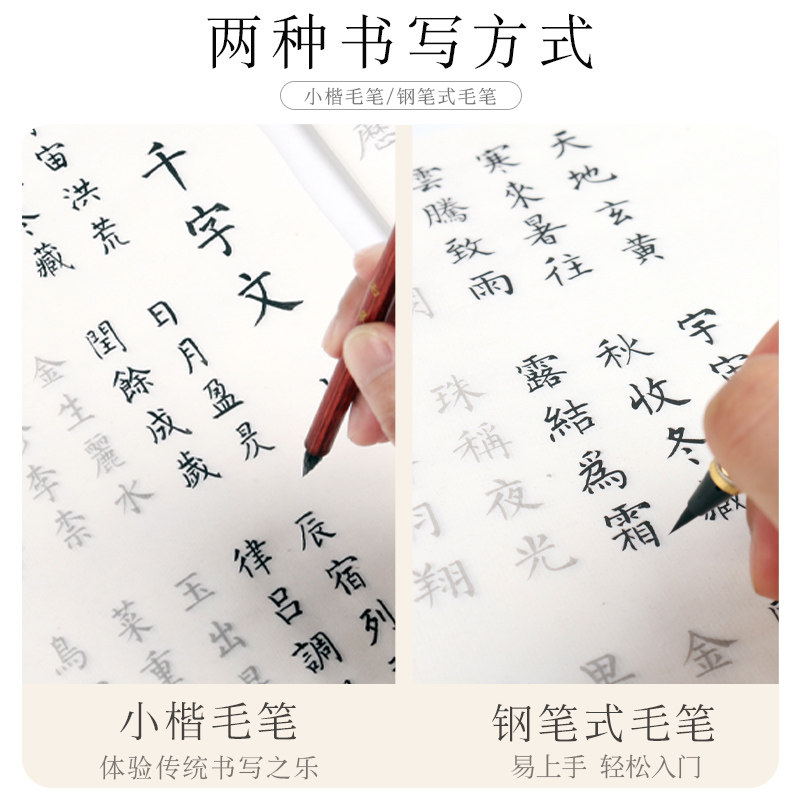 两种书写方式
小楷毛笔/钢笔式毛笔
千字文
宙洪荒
藏
日月盈昃
閏餘成歲
金生麗水
李柰
辰宿列
律呂調
玉出
菜重
鳥
天地玄黃
寒來暑往
雲騰致雨
宇宙
秋收冬藏
露結爲霜
珠稱夜光
翔
金
小楷毛笔
体验传统书写之乐
钢笔式毛笔
易上手 轻松入门